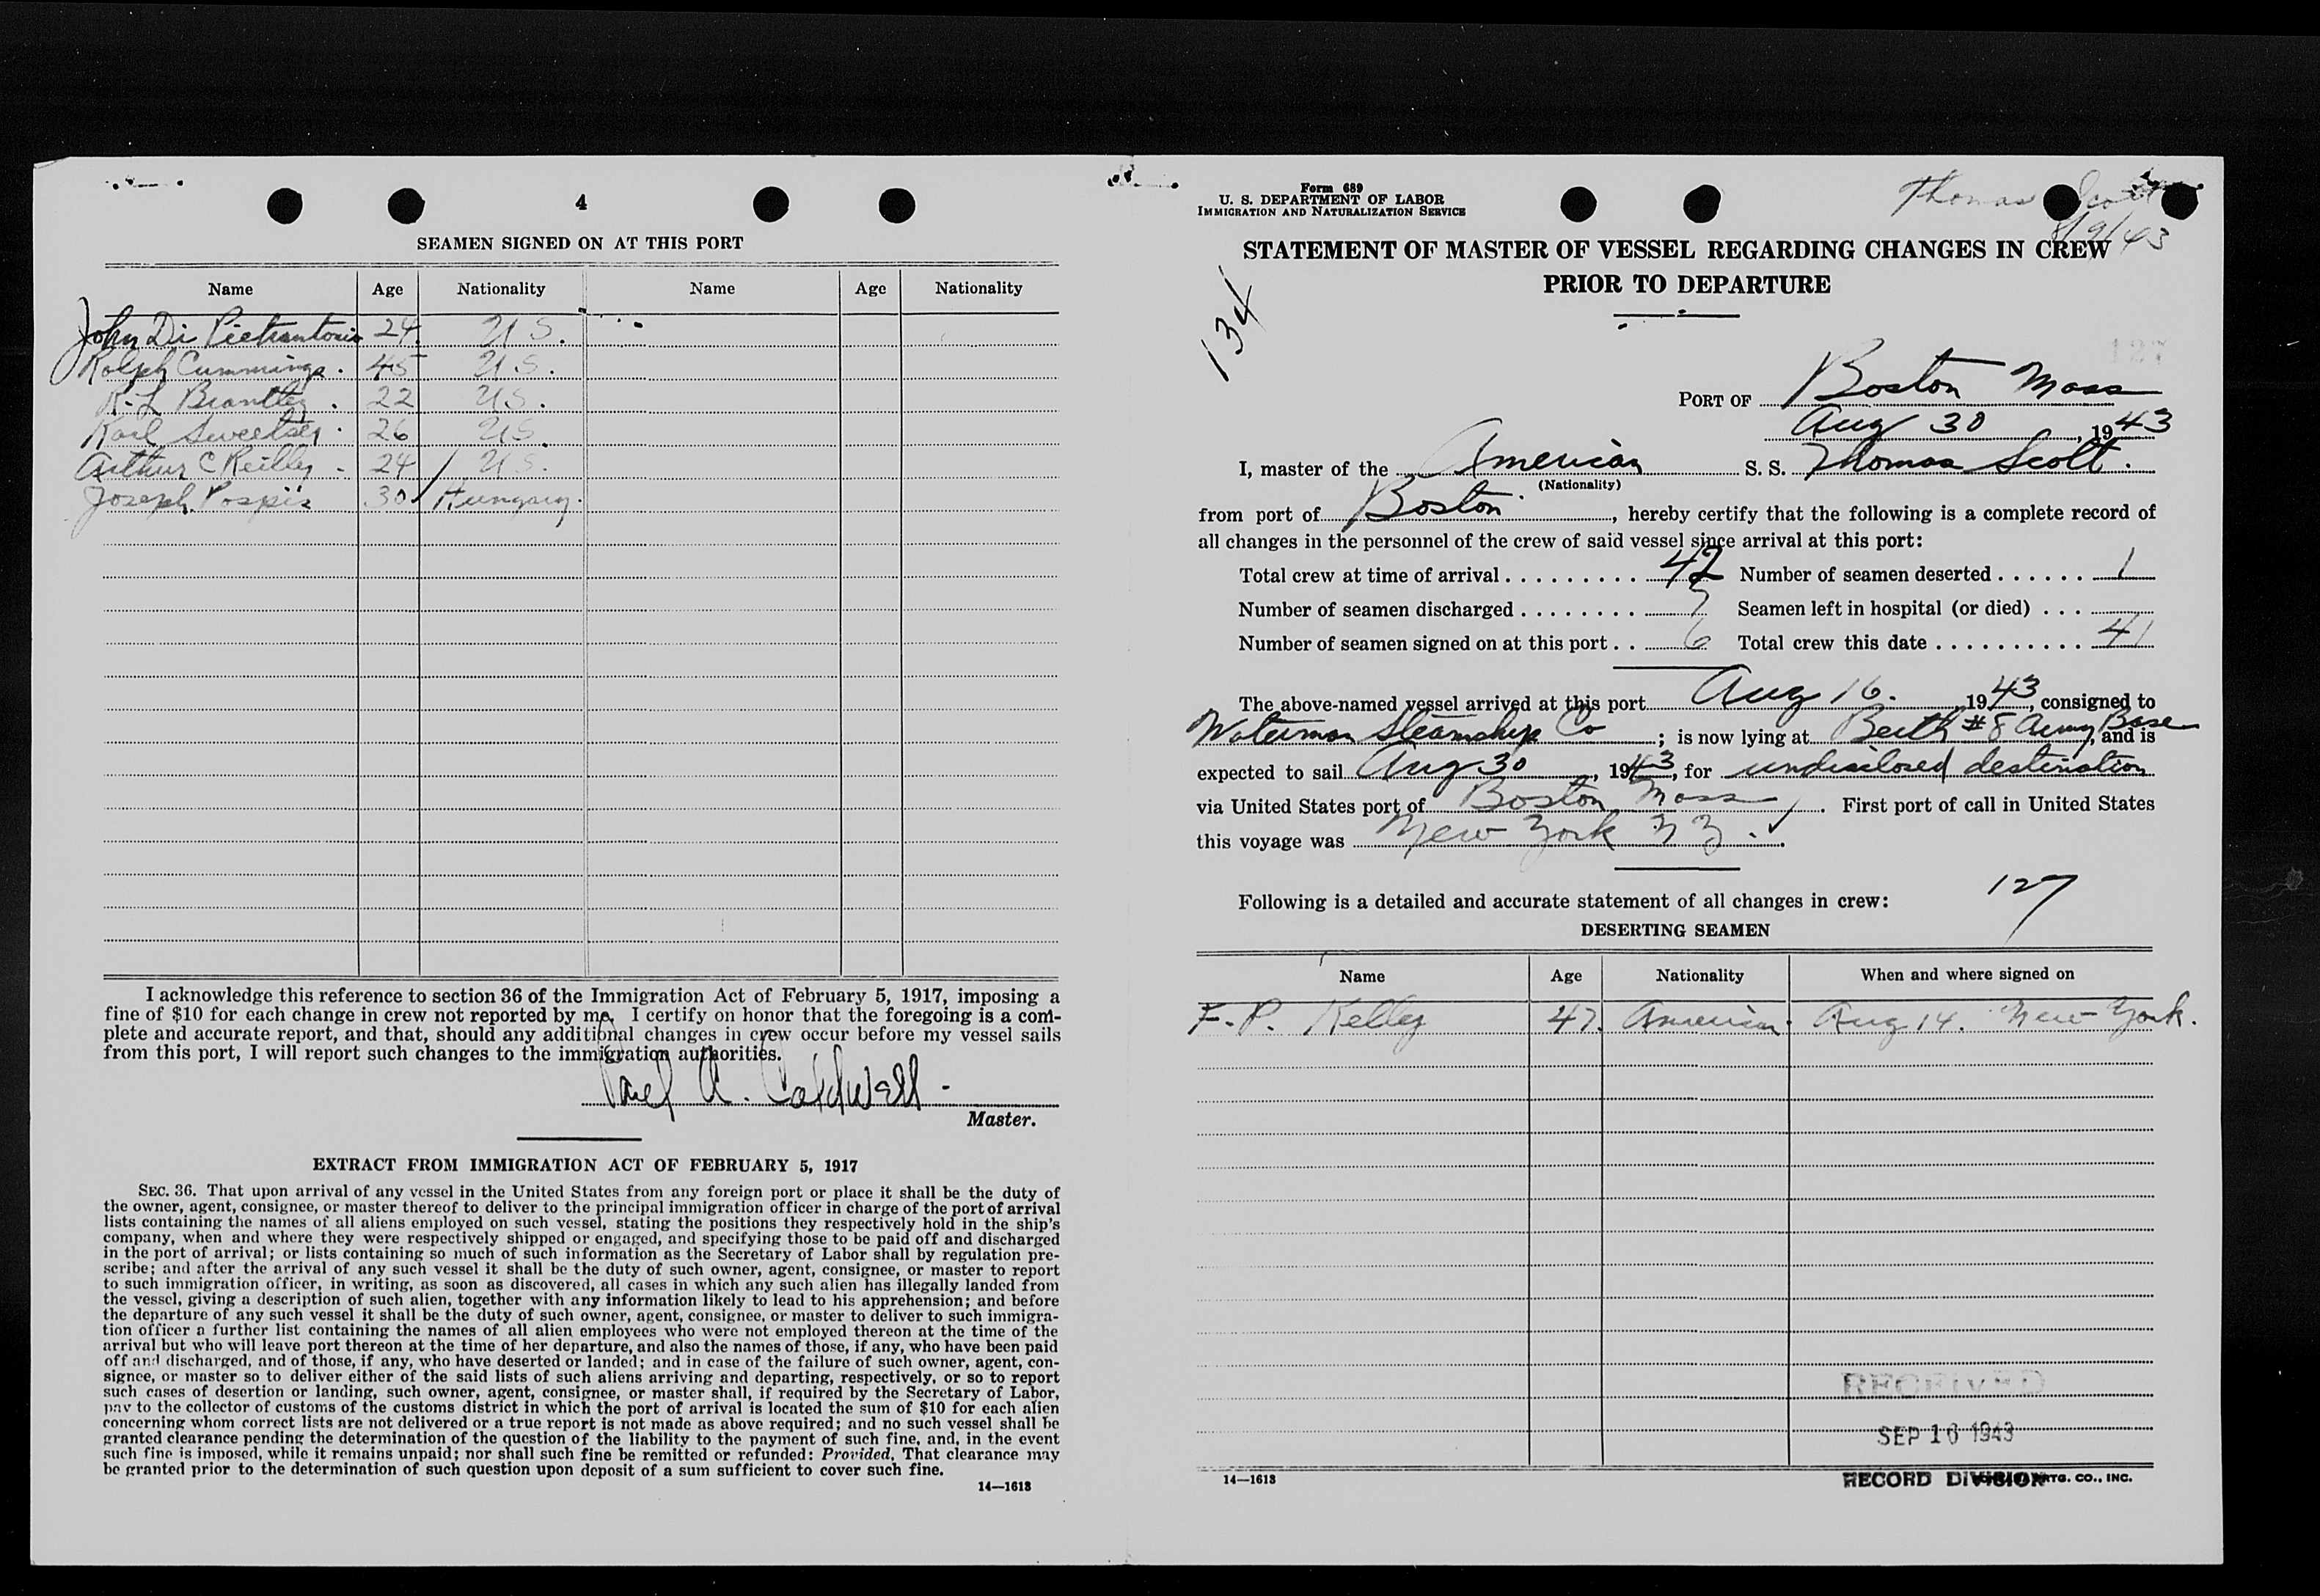 4
SEAMEN SIGNED ON AT THIS PORT
Name Age Nationality Name Age Nationality
John Di Pietrantonio 24 U S.
Ralph Cummings. 45 U.S.
R. L Brantley. 22 U.S.
Karl Sweetser. 26 U.S.
Arthur C Reilly - 24 U.S.
Joseph 30 Hungary.
I acknowledge this reference to section 36 of the Immigration Act of February 5, 1917, imposing a
fine of $10 for each change in crew not reported by me. I certify on honor that the foregoing is a com-
plete and accurate report, and that, should any additional changes in crew occur before my vessel sails
from this port, I will report such changes to the immigration authorities.
A. Caldwell -
Master.
EXTRACT FROM IMMIGRATION ACT OF FEBRUARY 5, 1917
SEC. 36. That upon arrival of any vessel in the United States from any foreign port or place it shall be the duty of
the owner, agent, consignee, or master thereof to deliver to the principal immigration officer in charge of the port of arrival
lists containing the names of all aliens employed on such vessel, stating the positions they respectively hold in the ship's
company, when and where they were respectively shipped or engaged, and specifying those to be paid off and discharged
in the port of arrival; or lists containing so much of such information as the Secretary of Labor shall by regulation pre-
scribe; and after the arrival of any such vessel it shall be the duty of such owner, agent, consignee, or master to report
to such immigration officer, in writing, as soon as discovered, all cases in which any such alien has illegally landed from
the vessel, giving a description of such alien, together with any information likely to lead to his apprehension; and before
the departure of any such vessel it shall be the duty of such owner, agent, consignee, or master to deliver to such immigra-
tion officer a further list containing the names of all alien employees who were not employed thereon at the time of the
arrival but who will leave port thereon at the time of her departure, and also the names of those, if any, who have been paid
off and discharged, and of those, if any, who have deserted or landed; and in case of the failure of such owner, agent, con-
signee, or master so to deliver either of the said lists of such aliens arriving and departing, respectively, or so to report
such cases of desertion or landing, such owner, agent, consignee, or master shall, if required by the Secretary of Labor,
pay to the collector of customs of the customs district in which the port of arrival is located the sum of $10 for each alien
concerning whom correct lists are not delivered or a true report is not made as above required; and no such vessel shall be
granted clearance pending the determination of the question of the liability to the payment of such fine, and, in the event
such fine is imposed, while it remains unpaid; nor shall such fine be remitted or refunded: Provided, That clearance may
be granted prior to the determination of such question upon deposit of a sum sufficient to cover such fine.
14—1613
Form 689
U. S. DEPARTMENT OF LABOR
IMMIGRATION AND NATURALIZATION SERVICE
Thomas Scott
8/9/43
STATEMENT OF MASTER OF VESSEL REGARDING CHANGES IN CREW
PRIOR TO DEPARTURE
134
127
PORT OF Boston Mass
Aug 30, 1943
I, master of the American S. S. Thomas Scott.
(Nationality)
from port of Boston, hereby certify that the following is a complete record of
all changes in the personnel of the crew of said vessel since arrival at this port:
Total crew at time of arrival 42 Number of seamen deserted 1
Number of seamen discharged 7 Seamen left in hospital (or died)
Number of seamen signed on at this port 6 Total crew this date 41
The above-named vessel arrived at this port Aug 16. 1943, consigned to
Waterman Steamship Co; is now lying at Berth #8 Army Base, and is
expected to sail Aug 30, 1943, for undisclosed destination
via United States port of Boston Mass. First port of call in United States
this voyage was New York N Y.
Following is a detailed and accurate statement of all changes in crew:
127
DESERTING SEAMEN
Name Age Nationality When and where signed on
F. P. Kelley 47. American. Aug 14. New York.
RECEIVED
SEP 16 1943
14—1613
RECORD DIVISION RTG. CO., INC.